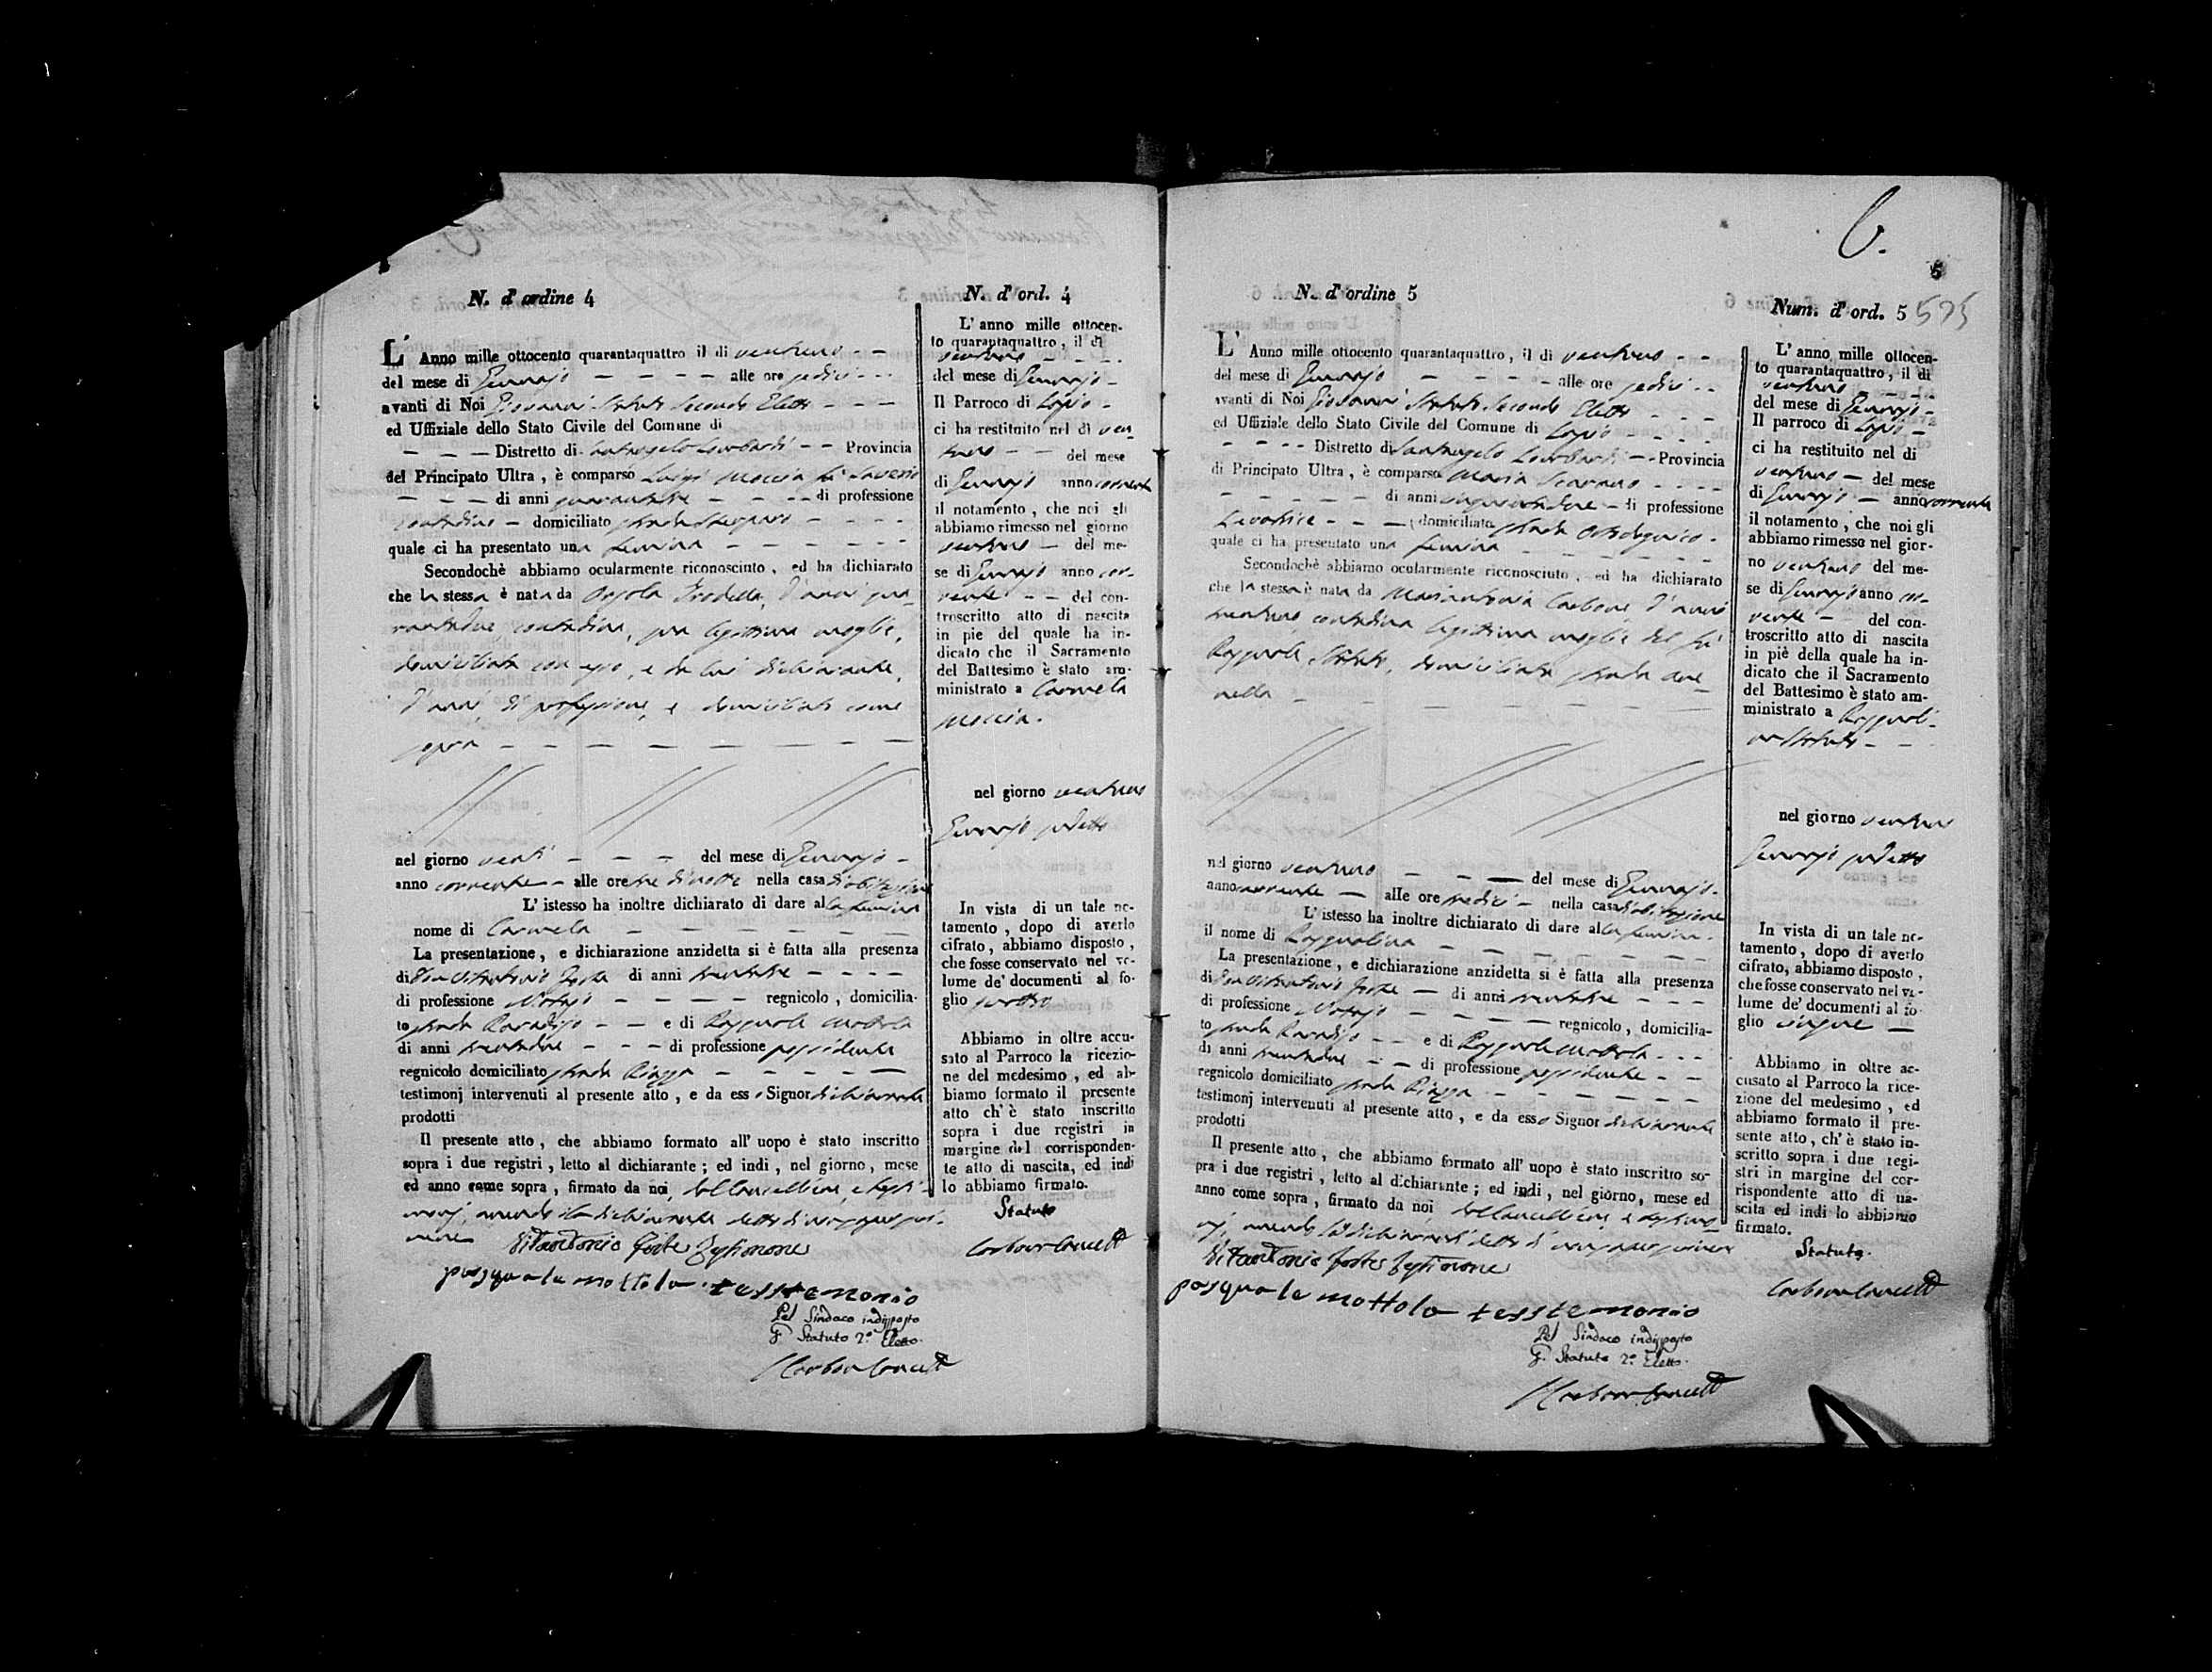 N. d'ordine 4
L'Anno mille ottocento quarantaquattro il di ventuno
del mese di Gennajo alle ore sedici
avanti di Noi Giovanni Statuto Secondo Eletto
ed Uffiziale dello Stato Civile del Comune di
Distretto di Santangelo Lombardi Provincia
del Principato Ultra, è comparso Luigi Moccia fu Saverio
di anni quarantatre di professione
contadino domiciliato strada
quale ci ha presentato una femina
Secondochè abbiamo ocularmente riconosciuto, ed ha dichiarato
che la stessa è nata da Orsola Irodella, d'anni qua-
rantadue, contadina, sua legittima moglie,
domiciliata con esso, e da lui dichiarante,
d'anni, di professione, e domiciliato come
sopra
nel giorno venti del mese di Gennajo
anno corrente alle ore tre di notte nella casa di abitazione
L'istesso ha inoltre dichiarato di dare alla femina
nome di Carmela
La presentazione, e dichiarazione anzidetta si è fatta alla presenza
di Don Vitantonio Forte di anni trentatre
di professione Notajo regnicolo, domicilia-
to strada Paradiso e di Pasquale Mottola
di anni trentadue di professione possidente
regnicolo domiciliato strada Piazza
testimonj intervenuti al presente atto, e da esso Signor dichiarante
prodotti
Il presente atto, che abbiamo formato all'uopo è stato inscritto
sopra i due registri, letto al dichiarante; ed indi, nel giorno, mese
ed anno come sopra, firmato da noi, dal Cancelliere, e testi-
monj, avendo il dichiarante detto di non saper scri-
vere
Vitantonio Forte Testimone
pasquale mottola tesstemonio
Pel Sindaco indisposto
G. Statuto 2.° Eletto.
Carbone Cancell
N. d'ord. 4
L'anno mille ottocen-
to quarantaquattro, il dì
ventuno
del mese di Gennajo
Il Parroco di Lapio
ci ha restituito nel dì ven-
tuno del mese
di Gennajo anno corrente
il notamento, che noi gli
abbiamo rimesso nel giorno
ventuno del me-
se di Gennajo anno cor-
rente del con-
troscritto atto di nascita
in piè del quale ha in-
dicato che il Sacramento
del Battesimo è stato am-
ministrato a Carmela
Moccia.
nel giorno ventuno
Gennajo sudetto
In vista di un tale no-
tamento, dopo di averlo
cifrato, abbiamo disposto,
che fosse conservato nel vo-
lume de' documenti al fo-
glio quattro
Abbiamo in oltre accu-
sato al Parroco la ricezio-
ne del medesimo, ed ab-
biamo formato il presente
atto ch'è stato inscritto
sopra i due registri in
margine del corrisponden-
te atto di nascita, ed indi
lo abbiamo firmato.
Statuto
Carbone Cancell
6.
5
N. d'ordine 5
L'Anno mille ottocento quarantaquattro, il di ventuno
del mese di Gennajo alle ore sedici
avanti di Noi Giovanni Statuto Secondo Eletto
ed Uffiziale dello Stato Civile del Comune di Lapio
Distretto di Santangelo Lombardi Provincia
di Principato Ultra, è comparsa Maria Scarano
di anni di professione
Levatrice domiciliata strada
quale ci ha presentato una femina
Secondochè abbiamo ocularmente riconosciuto, ed ha dichiarato
che la stessa è nata da Mariantonia Carbone, d'anni
trentuno, contadina legittima moglie del fu
Pasquale Statuto, domiciliata strada
nel giorno ventuno del mese di Gennajo
anno corrente alle ore tredici nella casa di abitazione
L'istesso ha inoltre dichiarato di dare alla femina
il nome di Pasqualina
La presentazione, e dichiarazione anzidetta si è fatta alla presenza
di Don Vitantonio Forte di anni trentatre
di professione Notajo regnicolo, domicilia-
to strada Paradiso e di Pasquale Mottola
di anni trentadue di professione possidente
regnicolo domiciliato strada Piazza
testimonj intervenuti al presente atto, e da esso Signor dichiarante
prodotti
Il presente atto, che abbiamo formato all'uopo è stato inscritto so-
pra i due registri, letto al dichiarante; ed indi, nel giorno, mese ed
anno come sopra, firmato da noi, dal Cancelliere, e testimo-
nj, avendo la dichiarante detto di non saper scrivere
Vitantonio Forte Testimone
pasquale mottola tesstemonio
Pel Sindaco indisposto
G. Statuto 2.° Eletto.
Carbone Cancell
Num. d'ord. 5 525
L'anno mille ottocen-
to quarantaquattro, il di
ventuno
del mese di Gennajo
Il parroco di Lapio
ci ha restituito nel di
ventuno del mese
di Gennajo anno corrente
il notamento, che noi gli
abbiamo rimesso nel gior-
no ventuno del me-
se di Gennajo anno cor-
rente del con-
troscritto atto di nascita
in piè della quale ha in-
dicato che il Sacramento
del Battesimo è stato am-
ministrato a Pasquali-
na Statuto
nel giorno ventuno
Gennajo sudetto
In vista di un tale no-
tamento, dopo di averlo
cifrato, abbiamo disposto,
che fosse conservato nel vo-
lume de' documenti al fo-
glio cinque
Abbiamo in oltre ac-
cusato al Parroco la rice-
zione del medesimo, ed
abbiamo formato il pre-
sente atto, ch'è stato in-
scritto sopra i due regi-
stri in margine del cor-
rispondente atto di na-
scita ed indi lo abbiamo
firmato.
Statuto.
Carbone Cancell